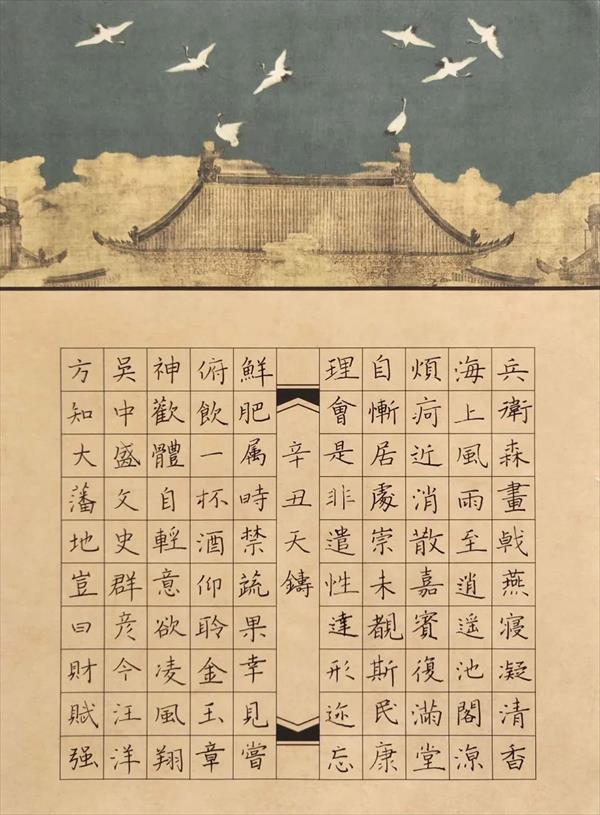 兵衛森畫戟燕寢凝清香
海上風雨至逍遥池閣涼
煩疴近消散嘉賓復滿堂
自慚居處崇未覩斯民康
理會是非遣性達形迹忘
辛丑天鑄
鮮肥属時禁蔬果幸見嘗
俯飲一杯酒仰聆金玉章
神歡體自輕意欲凌風翔
吳中盛文史群彦今汪洋
方知大藩地豈曰財賦强